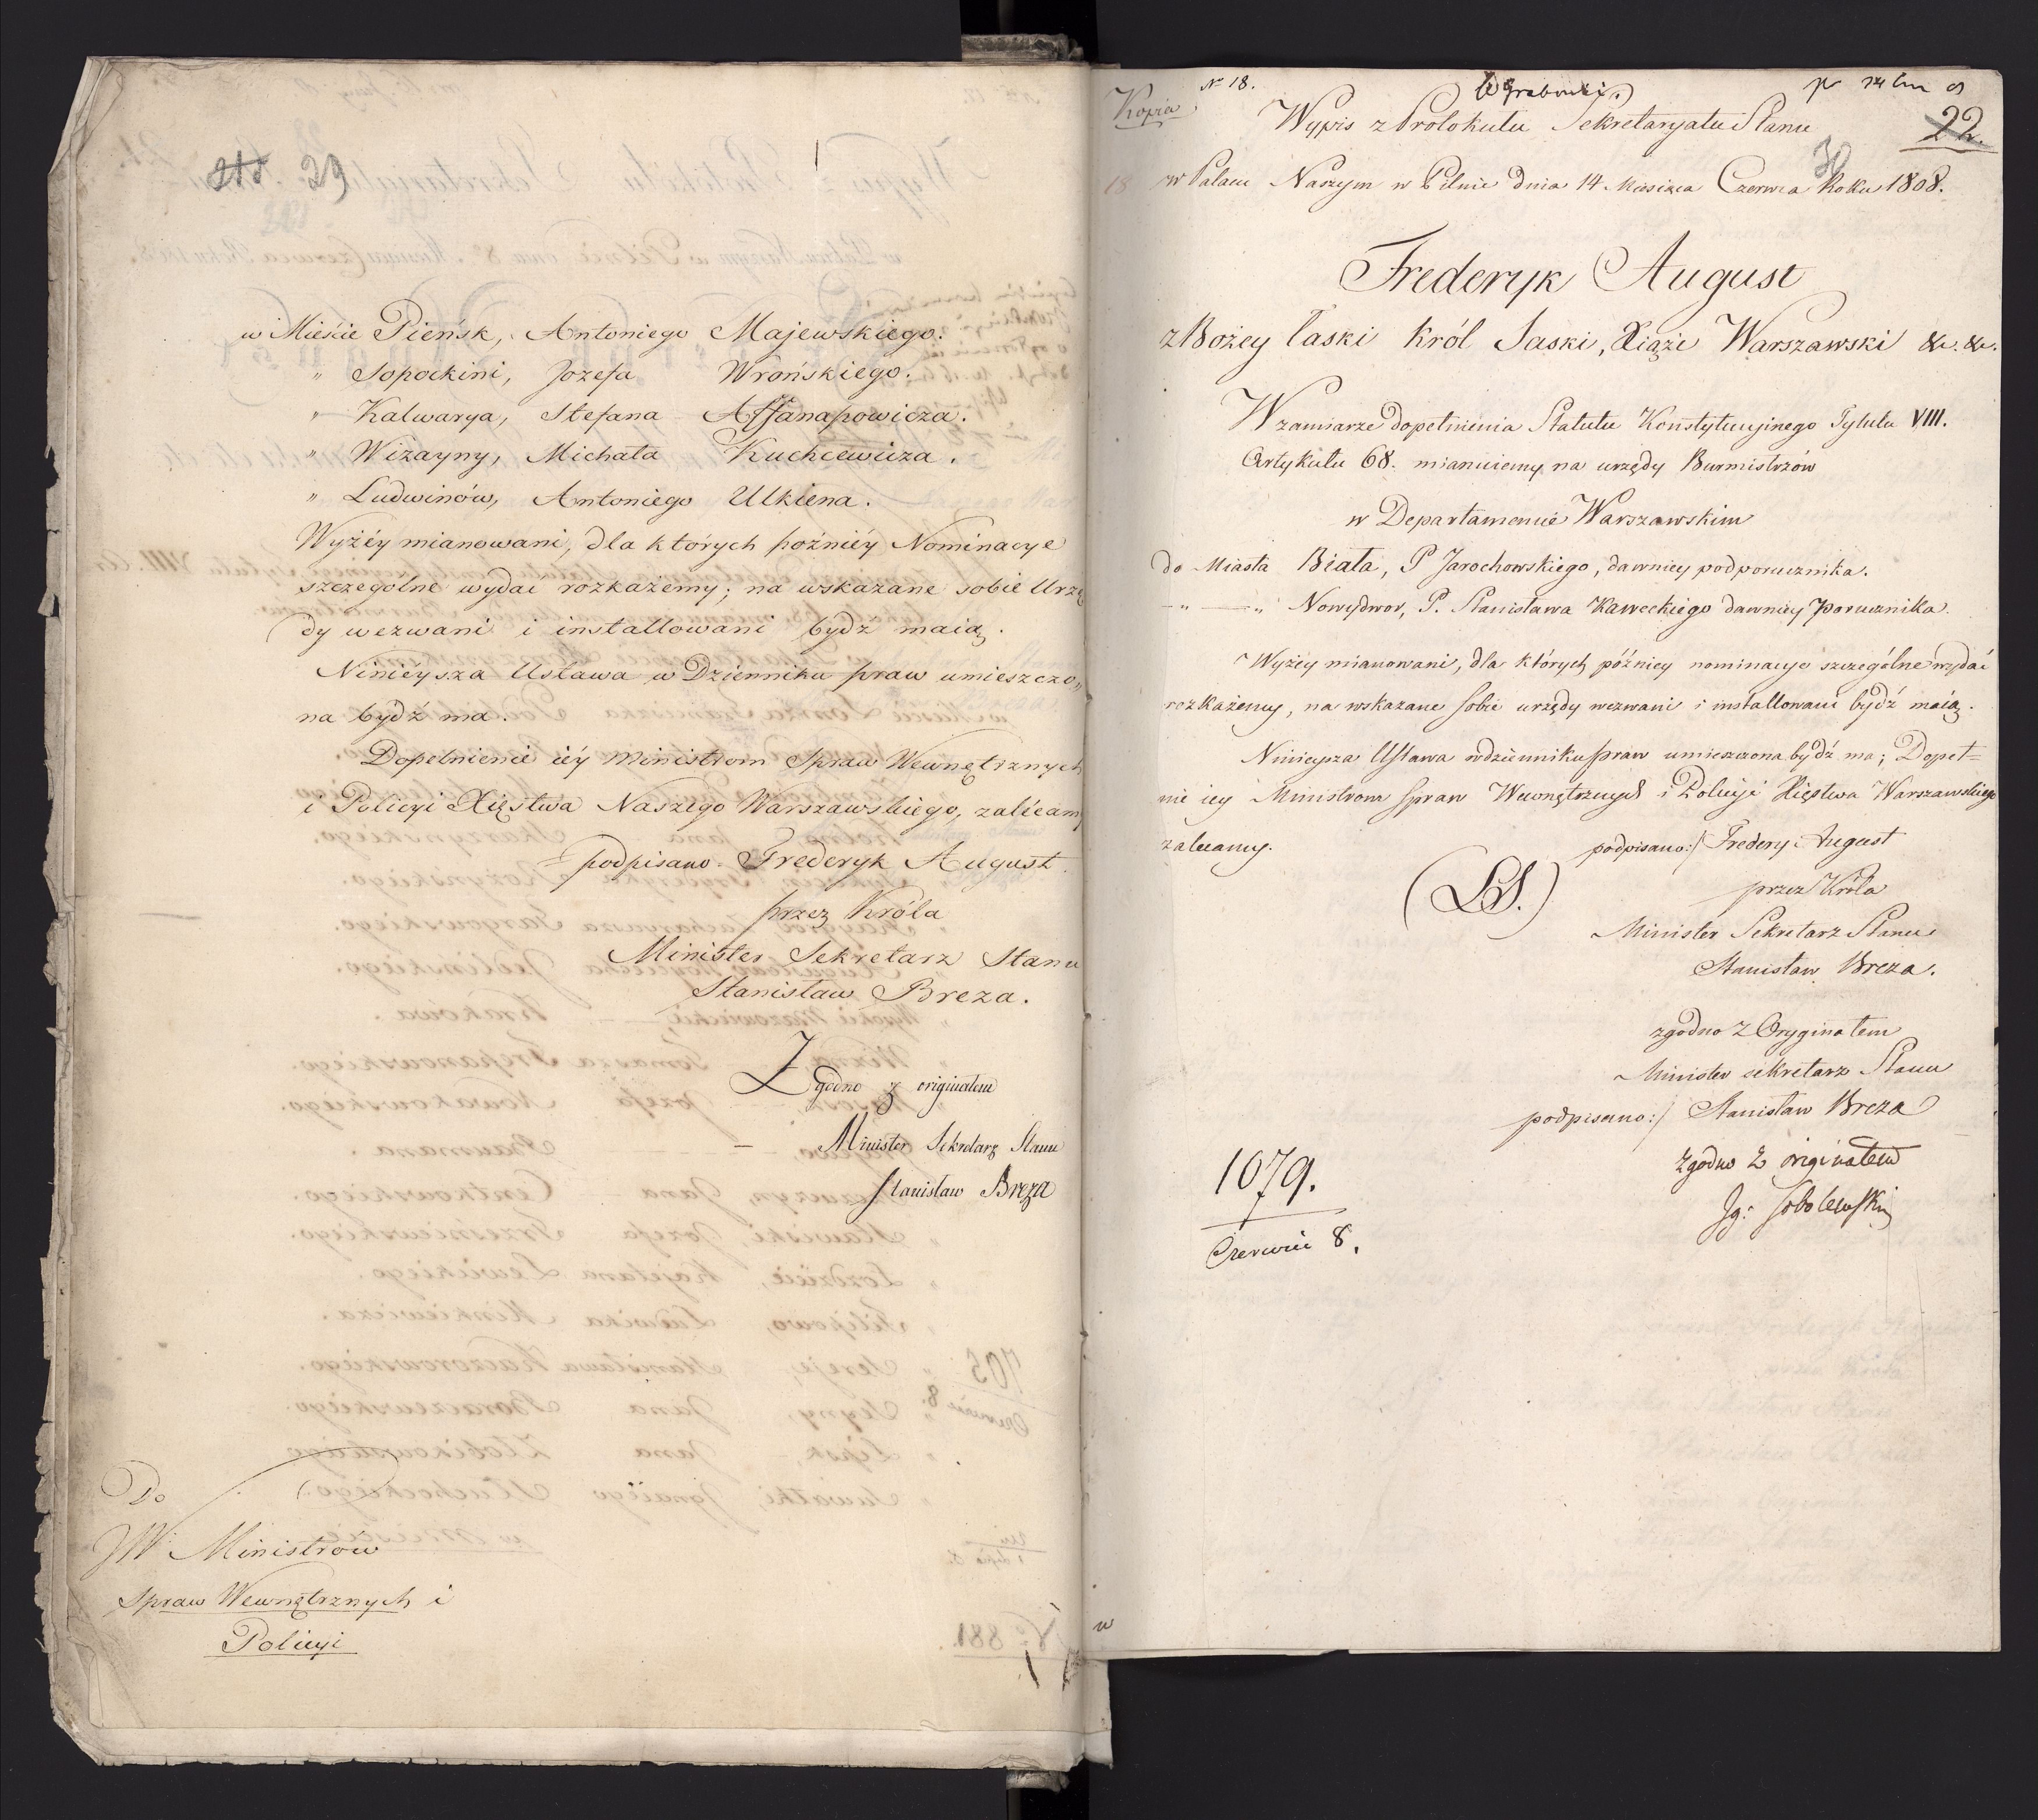 29
w Mieście Pieńsk, Antoniego Majewskiego.
" Sopockini, Jozefa Wrońskiego.
" Kalwarya, Stefana Affanasowicza.
" Wizayny, Michała Kuchcewicza.
" Ludwinów, Antoniego Ulkiena.
Wyżéy mianowani, dla których poźniéy Nominacye
szczególne wydać rozkażemy; na wskazane sobie Urzę
dy wezwani i installowani bydz maią.
Ninieysza Ustawa w Dzienniku praw umieszczo„
na bydź ma.
Dopełnienie iéy Ministrom Spraw Wewnętrznych
i Policyi Xięstwa Naszego Warszawskiego, zalecamy
podpisano Frederyk August.
przez Króla
Minister Sekretarz Stanu
Stanisław Breza.
Zgodno z originałem
Minister Sekretarz Stanu
Stanisław Breza
Do
JW Ministrów
Spraw Wewnętrznych i
Policyi
Kopia
N 18.
22.
30
Wypis z Protokułu Sekretaryatu Stanu
18 w Pałacu Naszym w Pilnic dnia 14 Miesiąca Czerwca Roku 1808.
Frederyk August
z Bożey Łaski Król Saski, Xiąże Warszawski &c. &c.
W zamiarze dopełnienia Statutu Konstytucyinego Tytułu VIII.
Artykułu 68. mianuiemy na urzędy Burmistrzów
w Departamencie Warszawskim
do Miasta Biała, P Jarochowskiego, dawniey podporucznika.
— " — " Nowydwor, P. Stanisława Kaweckiego dawniey porucznika.
Wyżey mianowani, dla których późniey nominacye szczególne wydać
rozkażemy, na wskazane sobie urzędy wezwani i installowani bydź maią.
Ninieysza Ustawa w dzienniku praw umieszczona bydź ma; Dopeł=
nie iey Ministrom spraw Wewnętrznych i Policyi Xięstwa Warszawskiego
zalecamy.
podpisano:/ Fredery: August
(LS.)
przez Króla
Minister Sekretarz Stanu
Stanisław Breza.
zgodno z Oryginałem
Minister sekretarz Stanu
podpisano:/ Stanisław Breza
zgodno z originałem
Jg: Sobolewski
1079.
Czerwiec 8.